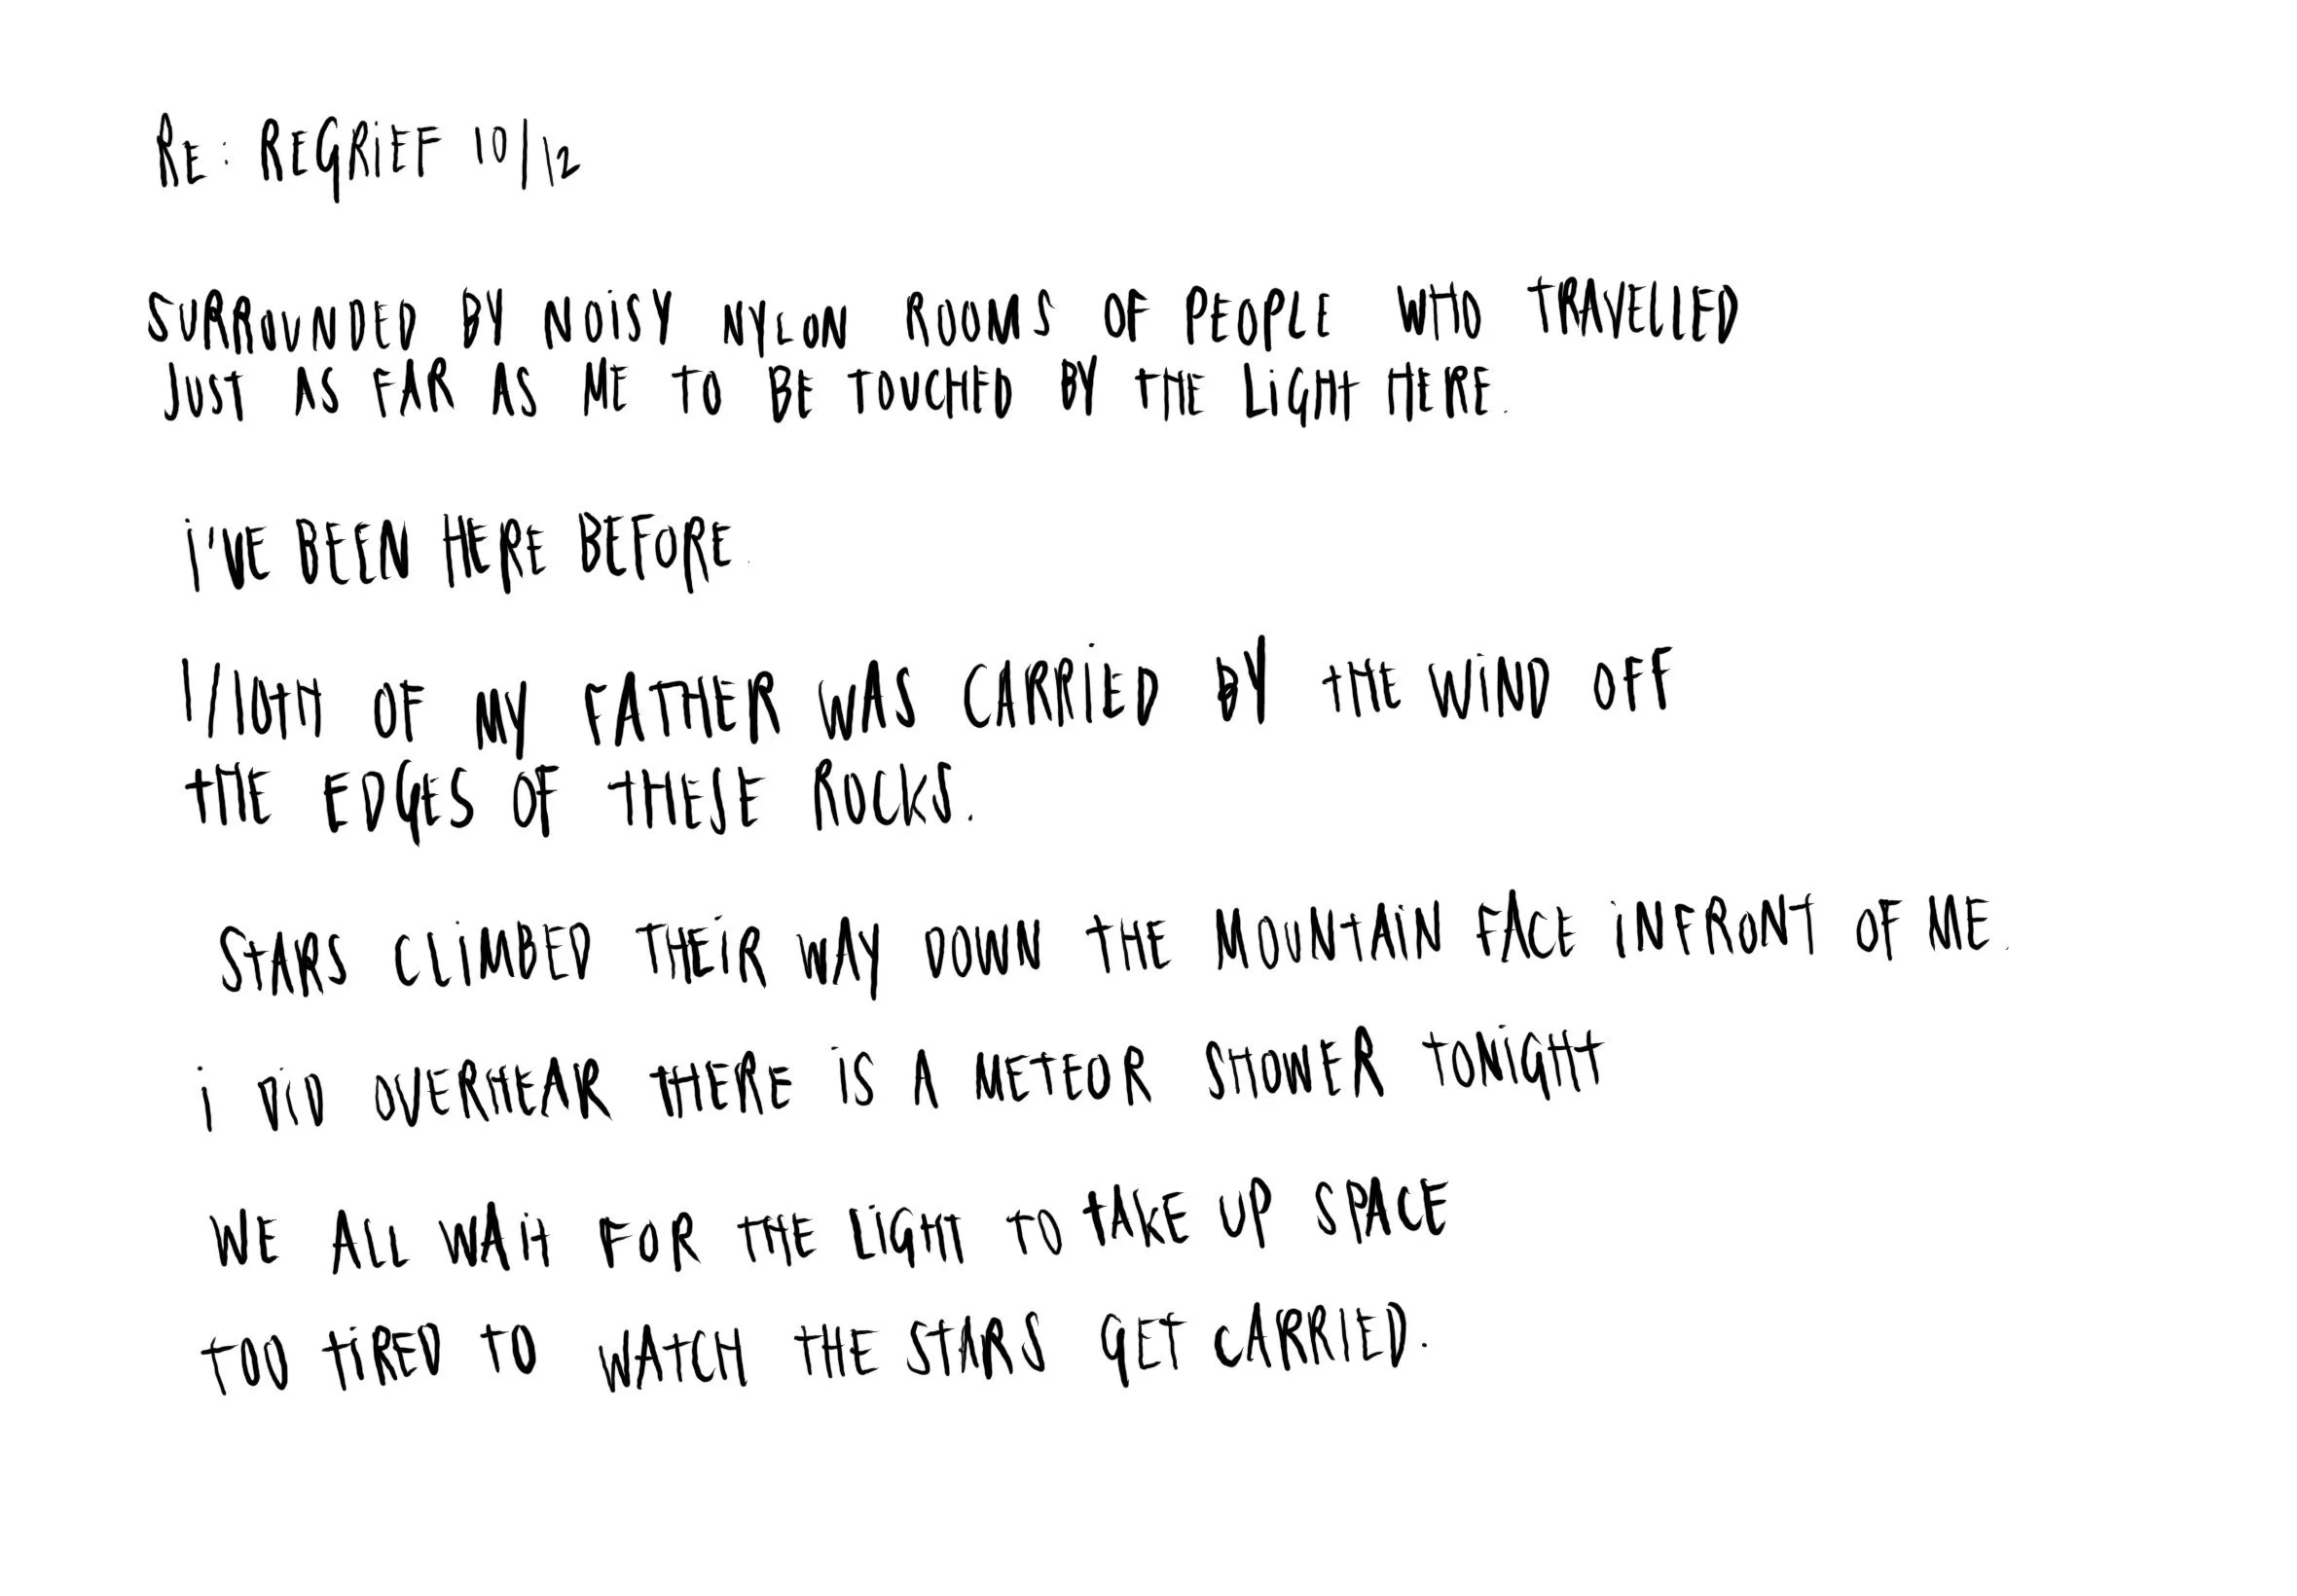 RE: REGRiEF 10/12
SURROUNDED BY NOiSY NYLON ROOMS OF PEOPLE WHO TRAVELLED
JUST AS FAR AS ME TO BE TOUCHED BY THE LiGHT HERE.
i'VE BEEN HERE BEFORE.
1/10TH OF MY FATHER WAS CARRiED BY THE WiND OFF
THE EDGES OF THESE ROCKS.
STARS CLiMBED THEiR WAY DOWN THE MOUNTAiN FACE iNFRONT OF ME.
i DiD OVERHEAR THERE iS A METEOR SHOWER TONiGHT
WE ALL WAiT FOR THE LiGHT TO TAKE UP SPACE
TOO TiRED TO WATCH THE STARS GET CARRIED.